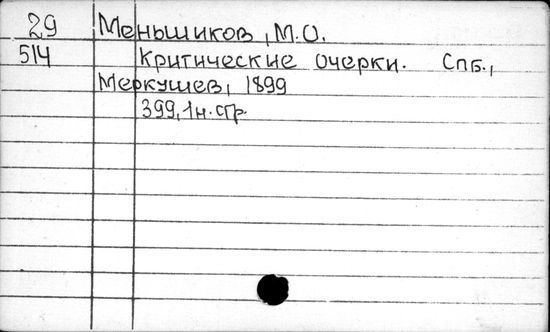 29 Меньшиков, М.О.
514 Критические очерки. Спб.,
Меркушев, 1899
399, 1н. стр.